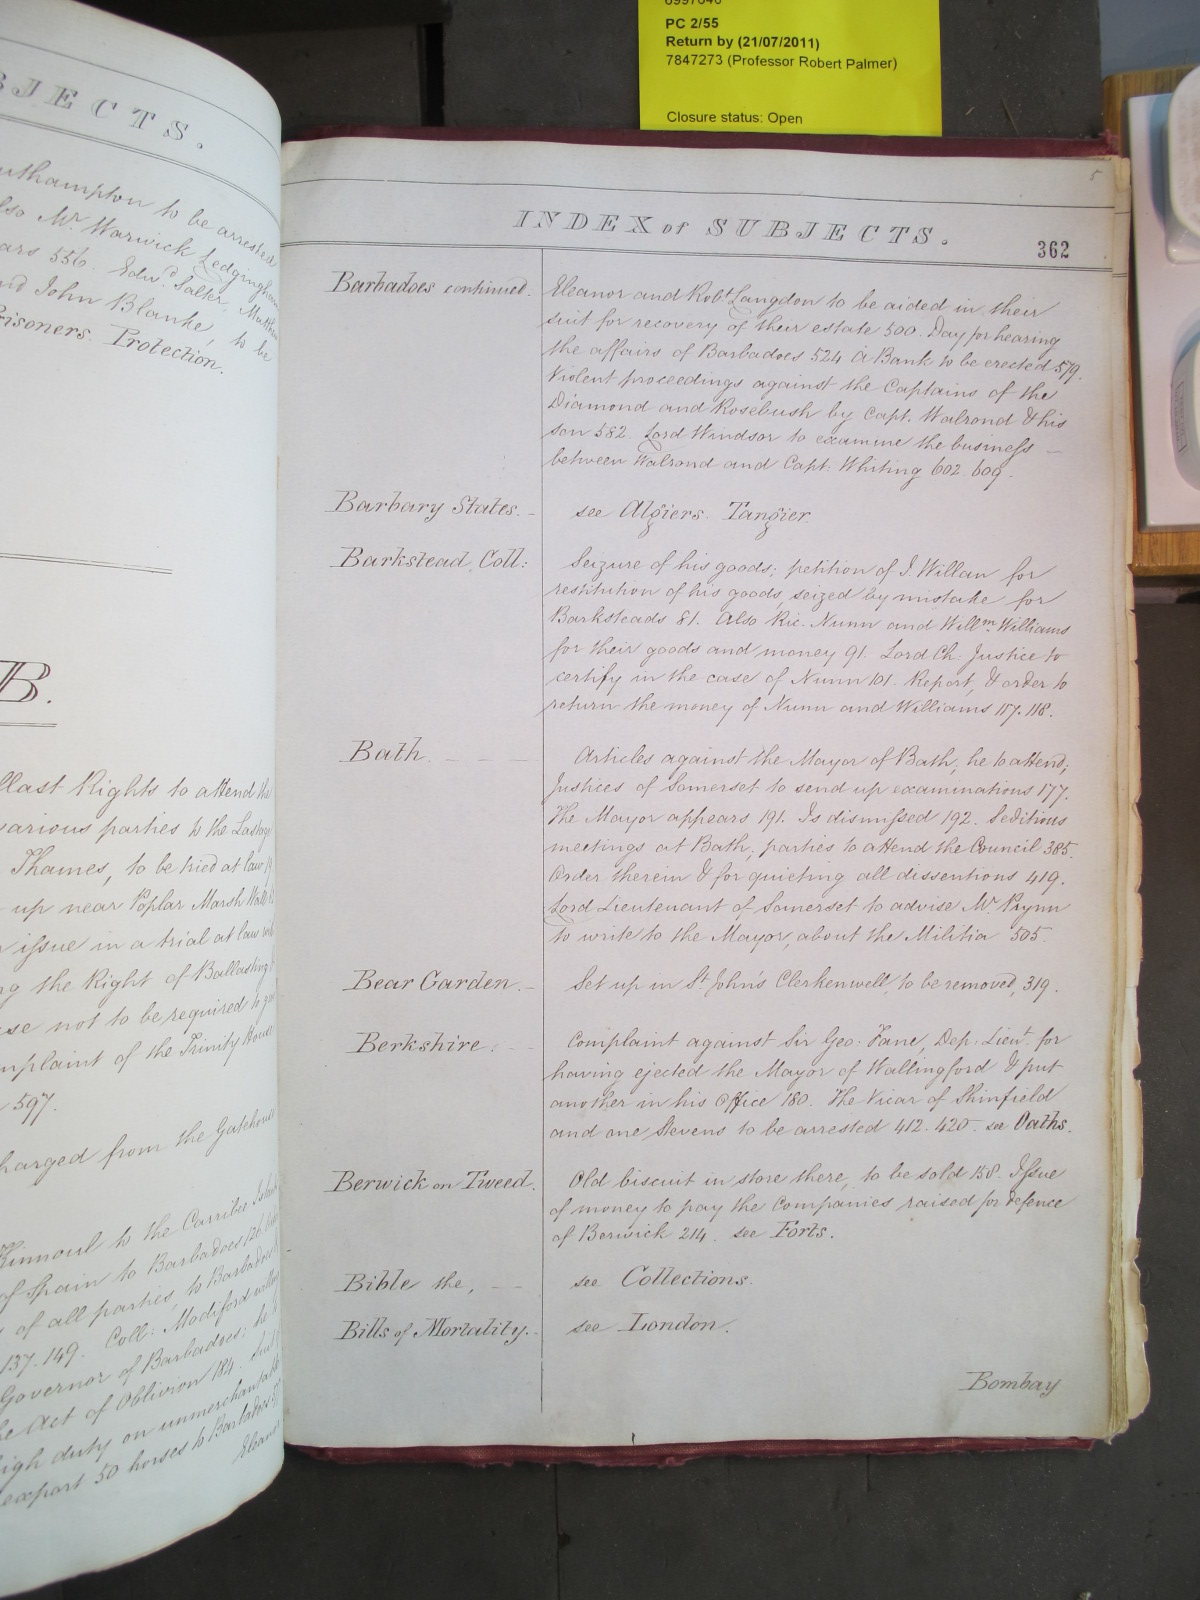 PC 2/55
Return by (21/07/2011)
7847273 (Professor Robert Palmer)
Closure status: Open
JECTS.
to be arrested
Mr. Warwick Ledingham
556. Edwd.
John Blanke, to be
Prisoners. Protection.
B.
Rights to attend the
various parties to the
Thames, to be tried at law
up near Poplar Marsh
issue in a trial at law
the Right of Ballasting
not to be required to
complaint of the Trinity House
597.
from the Gatehouse
Kinnoul to the Carribee
of Spain to Barbadoes
of all parties, to Barbadoes
137. 149. Coll: Modiford
Governor of Barbadoes; he
Act of Oblivion 184.
high duty on unmerchantable
export 50 horses to Barbadoes
Eleanor
5
INDEX of SUBJECTS.
362
Barbadoes continued. Eleanor and Robt. Langdon to be aided in their
suit for recovery of their estate 500. Day for hearing
the affairs of Barbadoes 524 A Bank to be erected 579.
Violent proceedings against the Captains of the
Diamond and Rosebush by Capt. Walrond & his
son 582. Lord Windsor to examine the business –
between Walrond and Capt: Whiting 602. 609.
Barbary States. - see Algiers. Tangier.
Barkstead, Coll: Seizure of his goods; petition of J. Willan for
restitution of his goods, seized by mistake for
Barksteads 81. Also Ric. Nunn and Willm. Williams
for their goods and money 91. Lord Ch: Justice to
certify in the case of Nunn 101. Report, & order to
return the money of Nunn and Williams 117. 118.
Bath. - - - Articles against the Mayor of Bath, he to attend;
Justices of Somerset to send up examinations 177.
The Mayor appears 191. Is dismissed 192. Seditious
meetings at Bath; parties to attend the Council 385.
Order therein & for quieting all dissentions 419.
Lord Lieutenant of Somerset to advise Mr. Prynn
to write to the Mayor, about the Militia 505.
Bear Garden. - Set up in St. John's Clerkenwell, to be removed, 319.
Berkshire. - - Complaint against Sir Geo. Fane, Dep. Lieut. for
having ejected the Mayor of Wallingford & put
another in his Office 180. The Vicar of Shinfield
and one Stevens to be arrested 412. 420. see Oaths.
Berwick on Tweed. Old biscuit in store there, to be sold 158. Issue
of money to pay the Companies raised for defence
of Berwick 214. see Forts.
Bible the, - - see Collections.
Bills of Mortality. - see London.
Bombay